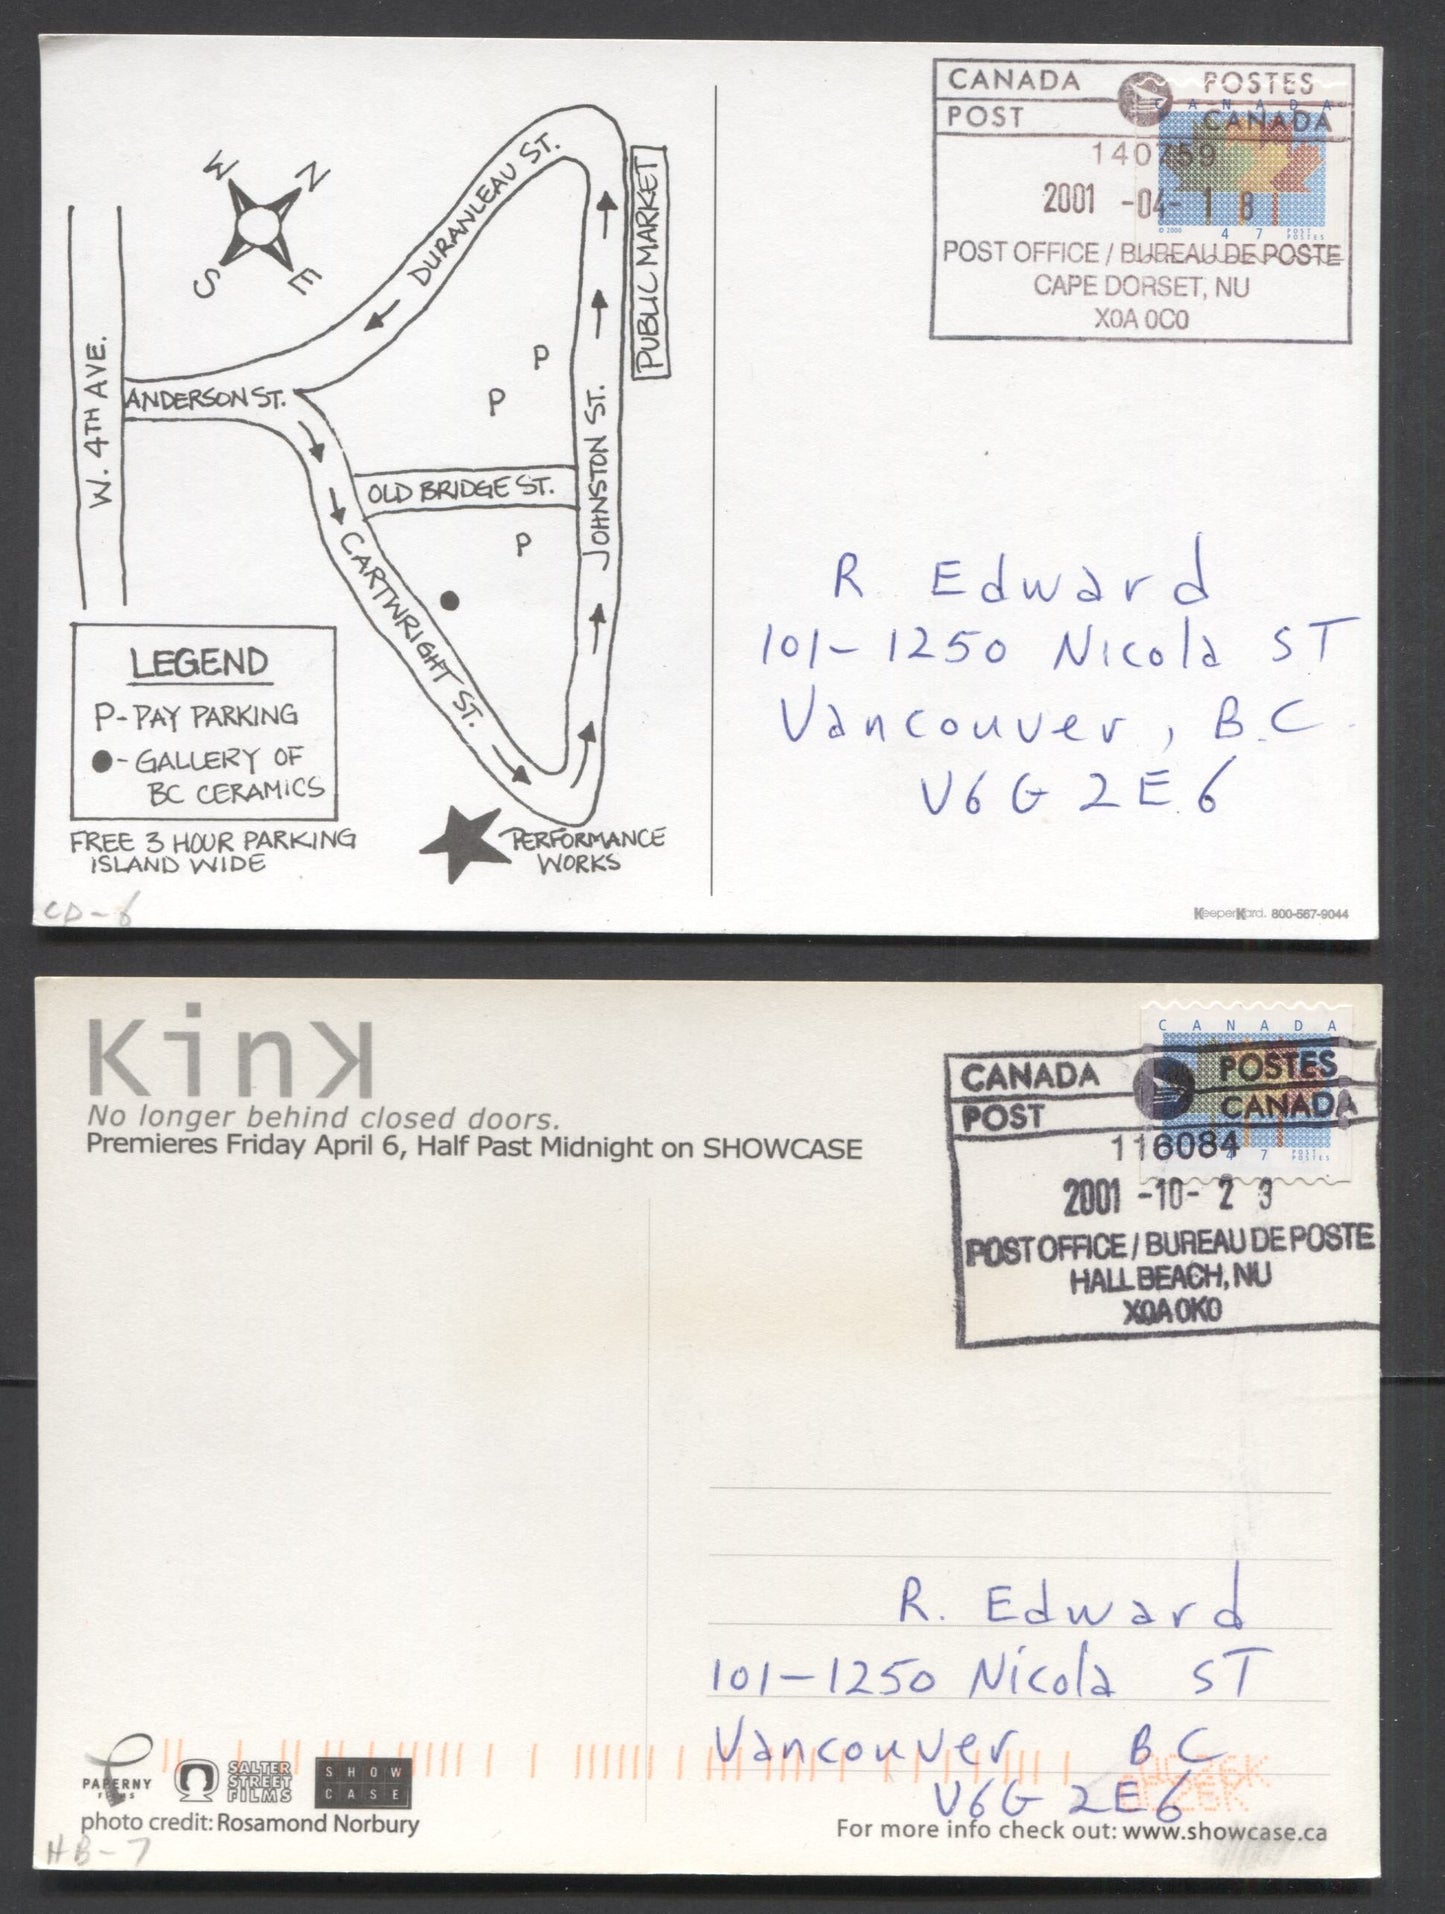 CANADA POST
POSTES CANADA
CANADA
140759
2001 -04- 1 8
© 2000 47 POST POSTES
POST OFFICE / BUREAU DE POSTE
CAPE DORSET, NU
X0A 0C0
W N
S E
DURANLEAU ST.
PUBLIC MARKET
W. 4TH AVE.
ANDERSON ST.
P
P
JOHNSTON ST.
OLD BRIDGE ST.
P
CARTWRIGHT ST.
LEGEND
P-PAY PARKING
●-GALLERY OF
BC CERAMICS
FREE 3 HOUR PARKING
ISLAND WIDE
PERFORMANCE
WORKS
CD-6
R Edward
101-1250 Nicola ST
Vancouver, B.C.
V6G 2E6
KeeperKard. 800-567-9044
Kink
No longer behind closed doors.
Premieres Friday April 6, Half Past Midnight on SHOWCASE
CANADA
CANADA POST
POSTES CANADA
116084
47 POST POSTES
2001 -10- 2 3
POST OFFICE / BUREAU DE POSTE
HALL BEACH, NU
X0A 0K0
R. Edward
101-1250 Nicola ST
Vancouver BC
V6G 2E6
PAPERNY FILMS
SALTER STREET FILMS
SHOWCASE
photo credit: Rosamond Norbury
For more info check out: www.showcase.ca
HB-7